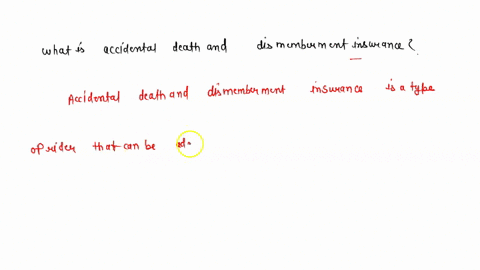 what is accidental death and dismemberment insurance?
Accidental death and dismemberment insurance is a type
of rider that can be ad